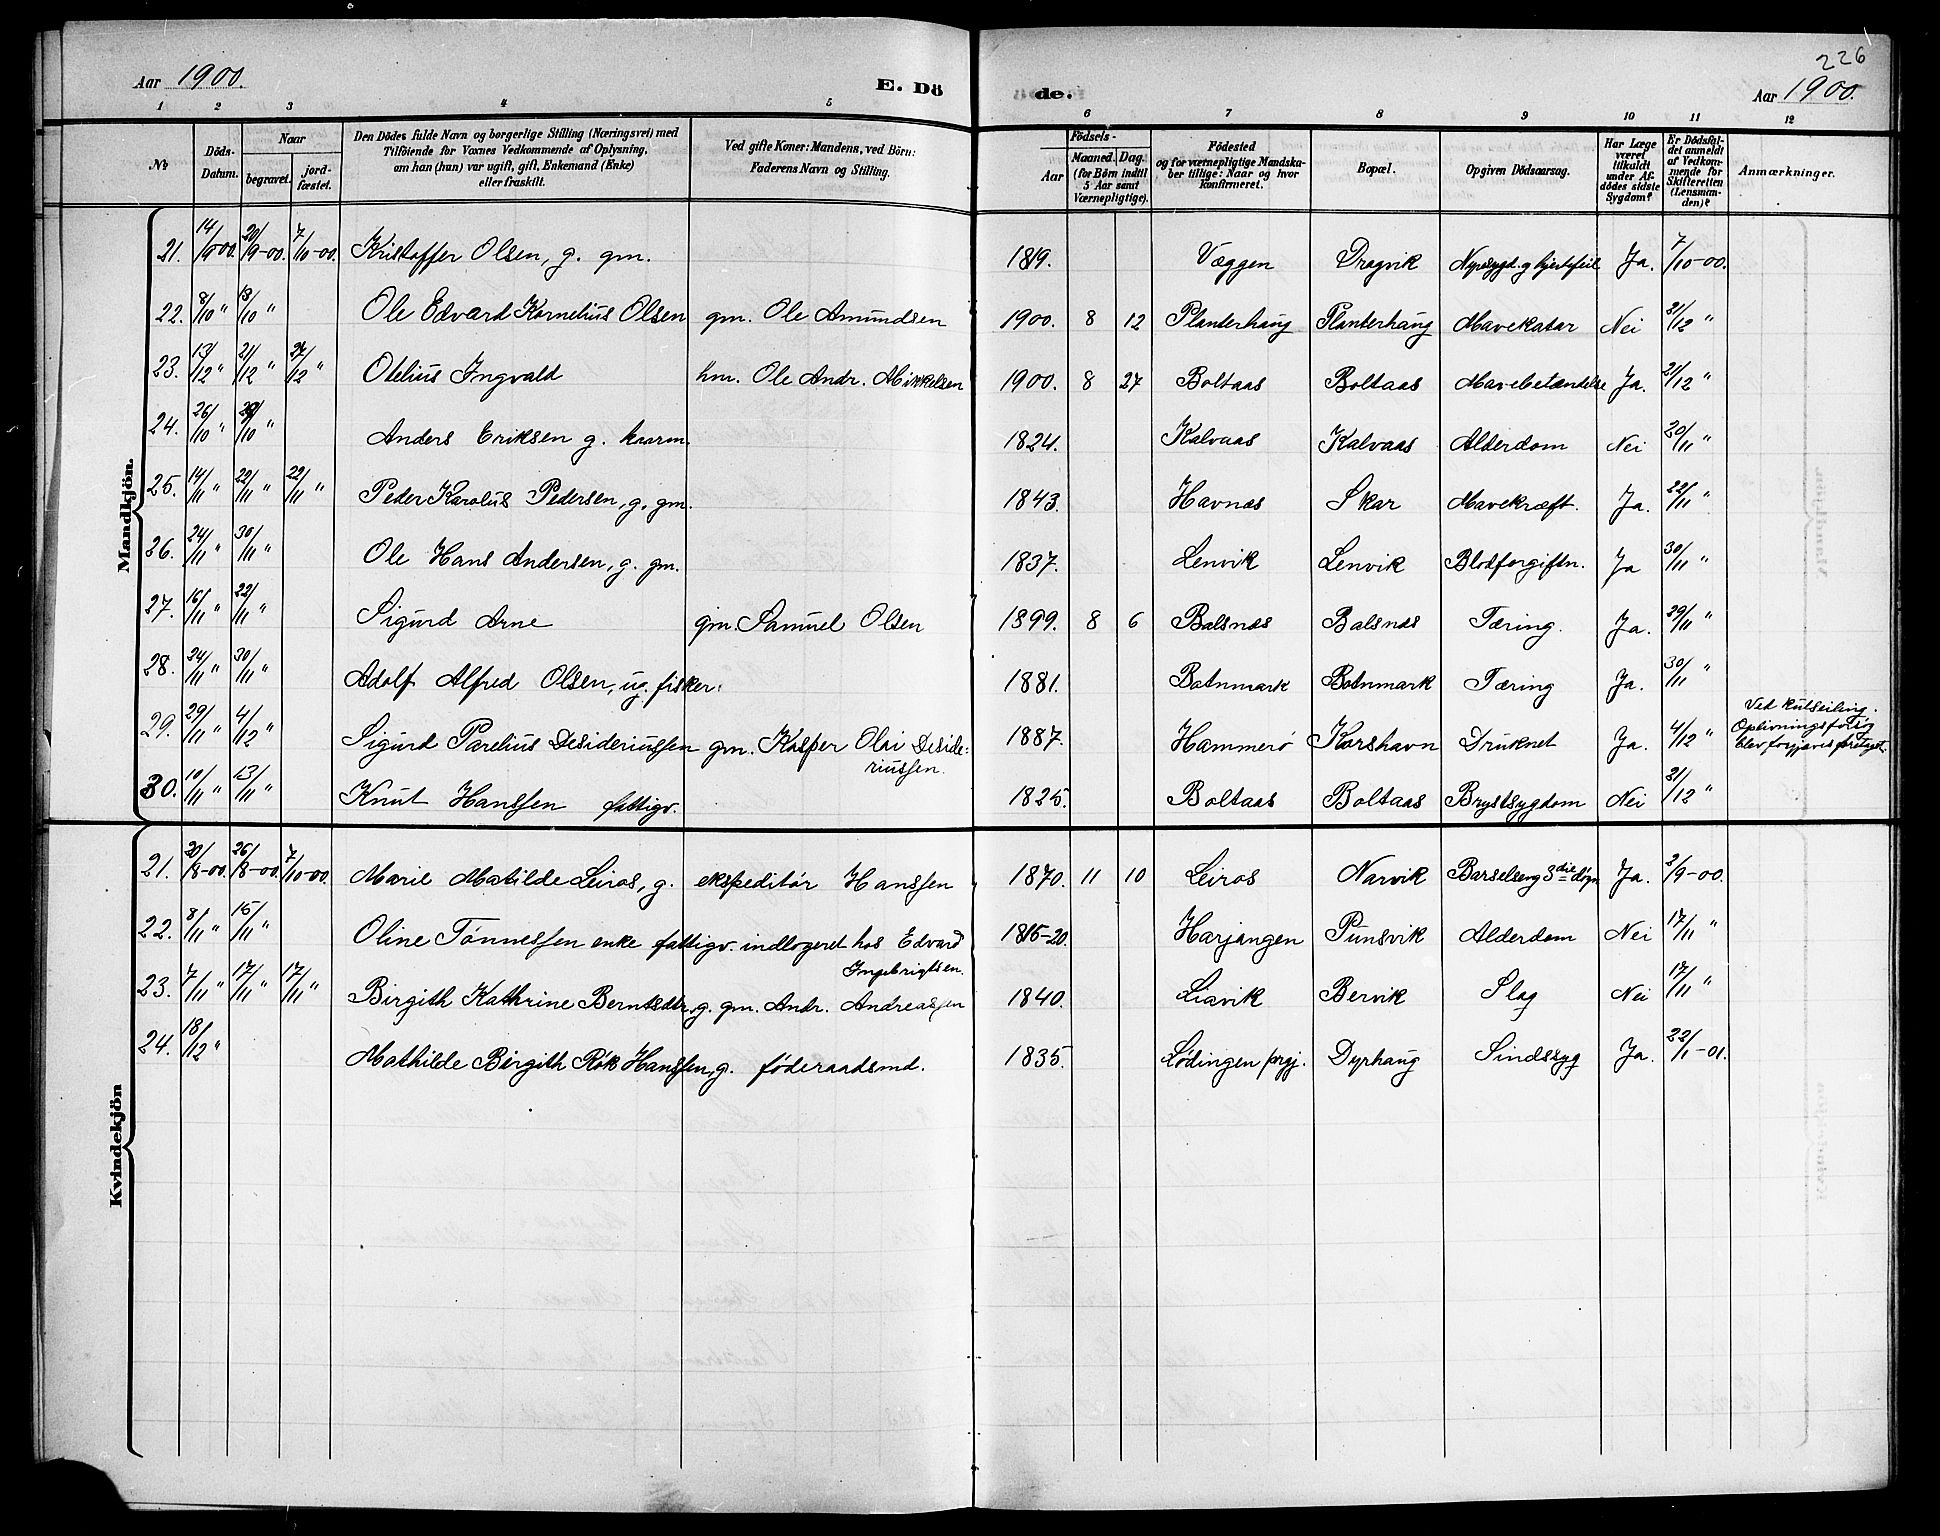 226
Aar 1900. E. Dö de. Aar 1900.
1 2 3 4 5 6 7 8 9 10 11 12
№ Döds-Datum. Naar begravet. jordfæstet. Den Dödes fulde Navn og borgerlige Stilling (Næringsvei) med Tilföiende for Voxnes Vedkommende af Oplysning, om han (hun) var ugift, gift, Enkemand (Enke) eller fraskilt. Ved gifte Koner: Mandens, ved Börn: Faderens Navn og Stilling. Födsels- Aar Maaned. Dag. (for Börn indtil 5 Aar samt Værnepligtige). Födested og for værnepligtige Mandskaber tillige: Naar og hvor konfirmeret. Bopæl. Opgiven Dödsaarsag. Har Læge været tilkaldt under Afdödes sidste Sygdom? Er Dödsfaldet anmeldt af Vedkommende for Skifteretten (Lensmanden)? Anmærkninger.
Mandkjön.
21. 14/9-00 20/9-00. 7/10-00. Kristoffer Olsen, g. gm. 1819. Væggen Dragvik Nyresygd. og hjertefeil Ja. 7/10-00.
22. 8/10 " 13/10 " Ole Edvard Kornelius Olsen gm. Ole Amundsen 1900. 8 12 Planterhaug Planterhaug Mavekatar Nei 21/12 "
23. 13/12 " 21/12 " 27/12 " Otelius Ingvald hm. Ole Andr. Mikkelsen 1900. 8 27 Boltaas Boltaas Mavebetændelse Ja. 21/12 "
24. 26/10 " 29/10 " Anders Eriksen g. kaarm. 1824. Kalvaas Kalvaas Alderdom Nei 20/11 "
25. 14/11 " 22/11 " 22/11 " Peder Karolus Pedersen, g. gm. 1843. Havnæs Skar Mavekræft. Ja. 22/11 "
26. 24/11 " 30/11 " Ole Hans Andersen, g. gm. 1837. Lenvik Lenvik Blodforgiftn. Ja 30/11 "
27. 16/11 " 22/11 " Sigurd Arne gm. Samuel Olsen 1899. 8 6 Balsnæs Balsnæs Tæring. Ja. 29/11 "
28. 24/11 " 30/11 " Adolf Alfred Olsen, ug. fisker. 1881. Botnmark Botnmark Tæring Ja. 30/11 "
29. 29/11 " 4/12 " Sigurd Parelius Desideriussen gm. Kasper Olai Deside-riussen. 1887. Hammerø Korshavn Druknet Ja. 4/12 " Ved kutseiling. Oplivningsforsøg blev forgjæves foretaget.
30. 10/11 " 13/11 " Knut Hanssen fattigv. 1825. Boltaas Boltaas Brystsygdom Nei 21/12 "
Kvindekjön
21. 20/8-00. 26/8-00. 7/10-00. Marie Matilde Leiros, g. ekspeditør Hanssen 1870. 11 10 Leiros Narvik Barselseng 3die døgn Ja. 2/9-00.
22. 8/11 " 15/11 " Oline Tønnessen enke fattigv. indlogeret hos Edvard Ingebrigtsen. 1815-20. Harjangen Punsvik Alderdom Nei 17/11 "
23. 7/11 " 17/11 " 17/11 " Birgith Kathrine Berntsdtr, g. gm. Andr. Andreassen 1840. Liavik Bervik Slag Nei 17/11 "
24. 18/12 " Mathilde Birgith Røk Hanssen, g. føderaadsmd. 1835. Lødingen prgj. Dyrhaug Sindssyg Ja. 22/1-01.